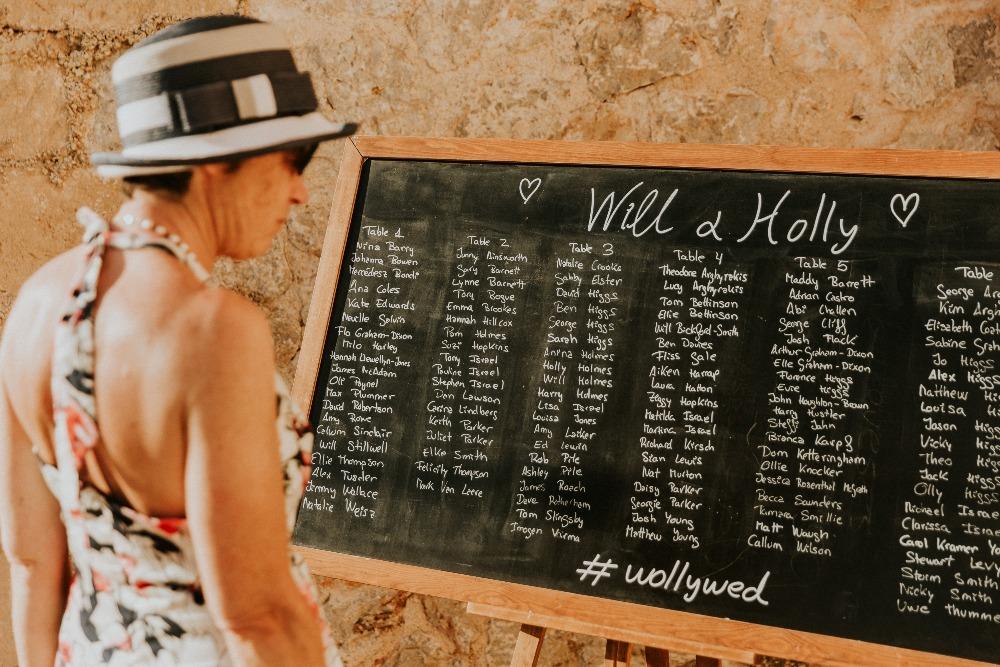 Will & Holly
Table 1
Nina Barry
Johanna Bowen
Ana Coles
Kate Edwards
Neville Galvin
Flo Graham-Dixon
Milo Harley
Hannah Llewellyn-Jones
James McAdam
Olt Paynel
Max Plummer
David Robertson
Amy Rowe
Calum Sinclair
Will Stillwell
Ellie Thompson
Alex Tusler
Jimmy Wallace
Natalie Weisz
Table 2
Jenny Ainsworth
Gary Barnett
Lynne Barnett
Tony Bogue
Emma Brookes
Hannah Hillcox
Pam Holmes
Suzi Hopkins
Tony Israel
Pauline Israel
Stephen Israel
Den Lawson
Carina Lindberg
Keith Parker
Juliet Parker
Elke Smith
Felicity Thompson
Mark Van Leere
Table 3
Natalie Crooke
Gabby Elster
David Higgs
Ben Higgs
George Higgs
Sarah Higgs
Anna Holmes
Holly Holmes
Will Holmes
Harry Holmes
Lisa Israel
Louisa Jones
Amy Larker
Ed Lewin
Rob Pile
Ashley Pile
James Roach
Dave Rotherham
Tom Slingsby
Imogen Varma
Table 4
Theodore Arghyrakis
Lucy Arghyrakis
Tom Bettinson
Ellie Bettinson
Will Bickford-Smith
Ben Davies
Fliss Gale
Aiken Harrap
Laura Hatton
Ziggy Hopkins
Matilda Israel
Martina Israel
Richard Kirsch
Sian Lewis
Nat Murton
Daisy Parker
Georgie Parker
Josh Young
Matthew Young
Table 5
Maddy Barrett
Adrian Castro
Abi Chellen
George Cligg
Josh Flack
Arthur Graham-Dixon
Elle Graham-Dixon
Florence Higgs
Evie Higgs
John Houghton-Brown
Harry Hustler
Steffi John
Bianca Karpf
Dom Ketteringham
Ollie Knocker
Jessica Rosenthal McGrath
Becca Saunders
Tamara Smillie
Matt Waugh
Callum Wilson
Table
George Ar
Kim Arg
Elizabeth Gat
Sabine Gra
Jo Higgs
Alex Higgs
Matthew Hi
Louisa Hi
Jason Higg
Vicky Higg
Theo Higg
Jack Higgs
Olly Higgs
Michael Israe
Clarissa Israe
Carol Kramer Yo
Stewart Levy
Storm Smith
Nicky Smith
Uwe Thumm
#wollywed